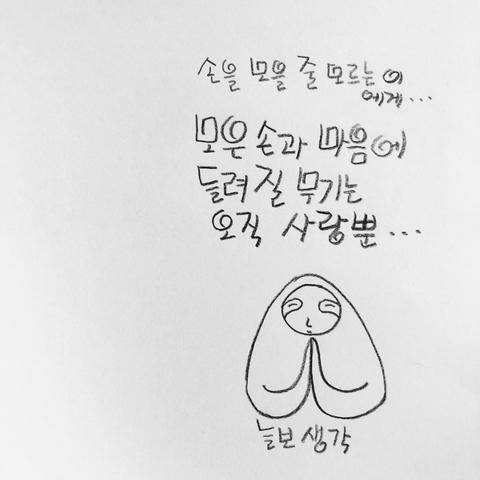 손을 모을 줄 모르는 이
에게...
모은 손과 마음에
들려질 무기는
오직 사랑뿐...
늘보 생각